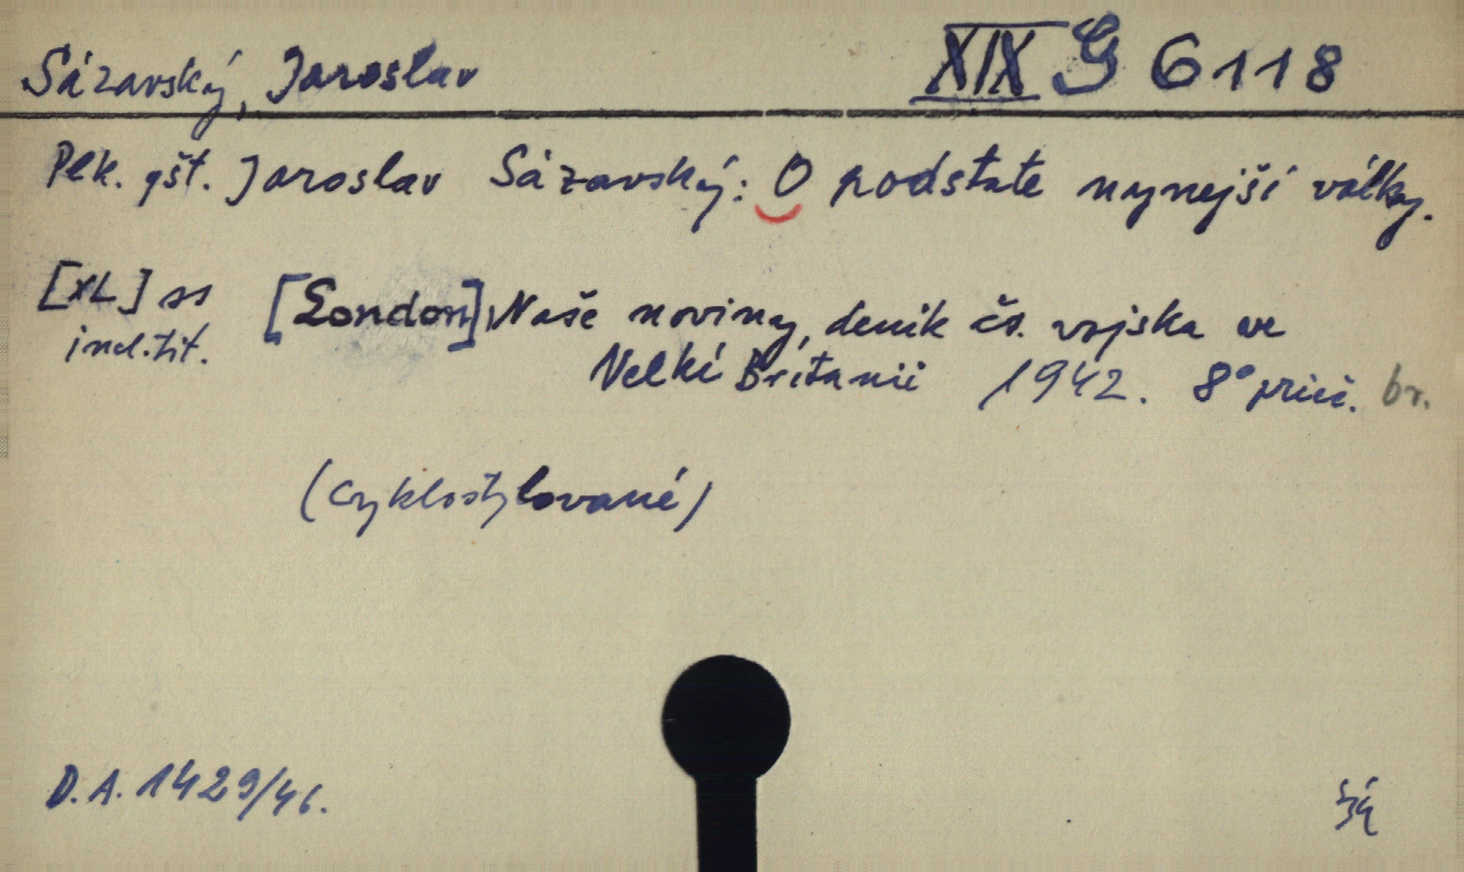 Sázavský, Jaroslav XIX G 6118
Plk. gšt. Jaroslav Sázavský: O podstate nynejší války.
[XL] ss [London], Naše noviny, denik čs. vojska ve
incl. tit. Velké Britanii 1942. 8° příč. br.
(Cyklostylované)
D. A. 1429/46.